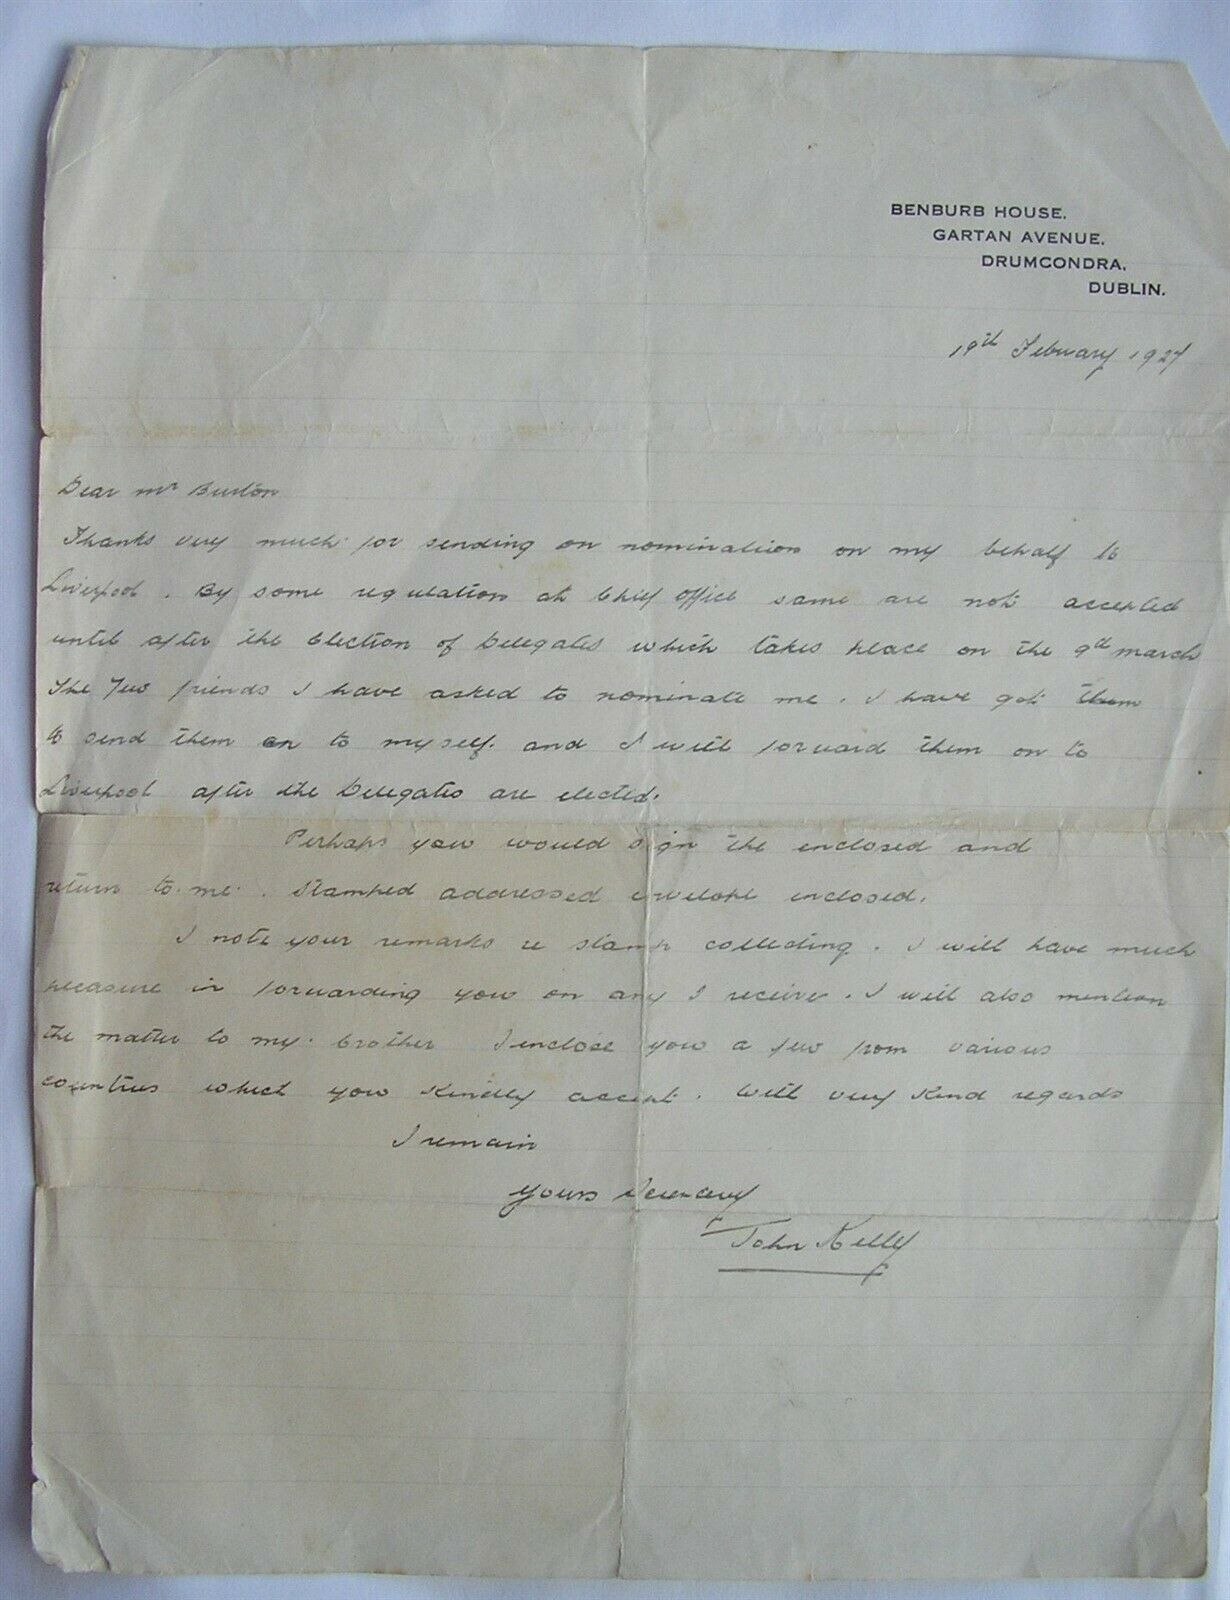 BENBURB HOUSE.
GARTAN AVENUE.
DRUMCONDRA.
DUBLIN.
19th February 1927
Dear Mr Burton
Thanks very much for sending on nomination on my behalf to
Liverpool. By some regulation at Chief Office same are not accepted
until after the Election of Delegates which takes place on the 9th March
The few friends I have asked to nominate me. I have got them
to send them on to myself. and I will forward them on to
Liverpool after the Delegates are elected.
Perhaps you would sign the enclosed and
return to me. Stamped addressed envelope enclosed.
I note your remarks re stamp collecting. I will have much
pleasure in forwarding you on any I receive. I will also mention
the matter to my brother I enclose you a few from various
countries which you kindly accept. With very kind regards
I remain
Yours Sincerely
John Kelly